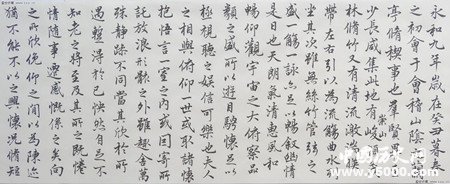 永和九年歲在癸丑暮春
之初會于會稽山陰之蘭
亭脩稧事也羣賢畢至
少長咸集此地有崇山峻領茂
林脩竹又有清流激湍暎
帶左右引以為流觴曲水列
坐其次雖無絲竹管弦之
盛一觴一詠亦足以暢叙幽情
是日也天朗氣清惠風和
暢仰觀宇宙之大俯察品
類之盛所以遊目騁懷足以
極視聽之娛信可樂也夫人
之相與俯仰一世或取諸懷
抱悟言一室之內或因寄所
託放浪形骸之外雖趣舍萬
殊靜躁不同當其欣於所
遇暫得於己怏然自足不
知老之將至及其所之既惓
情隨事遷感慨係之矣向
之所欣俛仰之間以為陳迹
猶不能不以之興懷況脩短
中国历史网
y5000.com